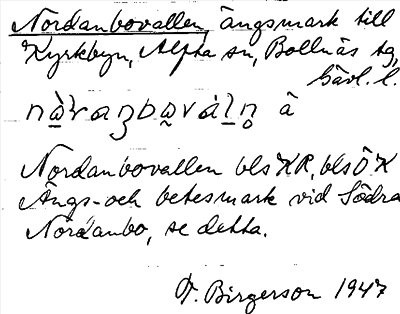 Nordanbovallen, ängsmark till
Kyrkbyn, Alfta sn, Bollnäs tg,
Gävl. l.
Nordanbovallen bls KR, bls Ö K
Ängs- och betesmark vid Södra
Nordanbo, se detta.
V. Birgerson 1947